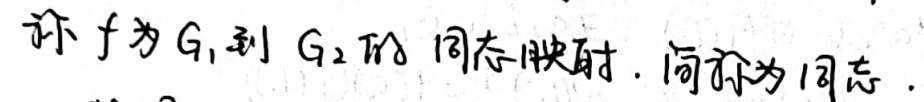 称 f 为 G₁到 G₂ 的 同态映射. 简称为同态.